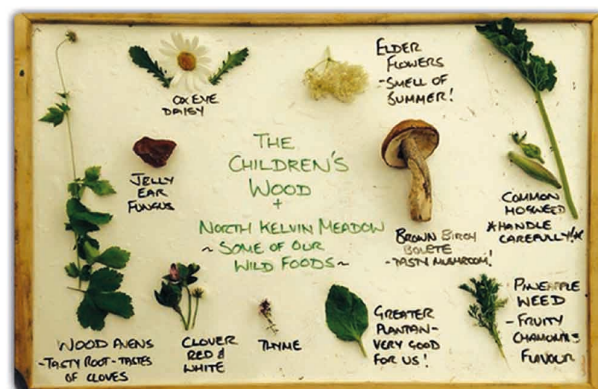 OX EYE
DAISY
ELDER
FLOWERS
-SMELL OF
SUMMER!
JELLY
EAR
FUNGUS
THE
CHILDREN'S
WOOD
+
NORTH KELVIN MEADOW
~ SOME OF OUR
WILD FOODS ~
BROWN BIRCH
BOLETE
-TASTY MUSHROOM!
COMMON
HOGWEED
*HANDLE
CAREFULLY!*
WOOD AVENS
-TASTY ROOT-TASTES
OF CLOVES
CLOVER
RED &
WHITE
THYME
GREATER
PLANTAN-
VERY GOOD
FOR US!
PINEAPPLE
WEED
- FRUITY
CHAMOMILE
FLAVOUR